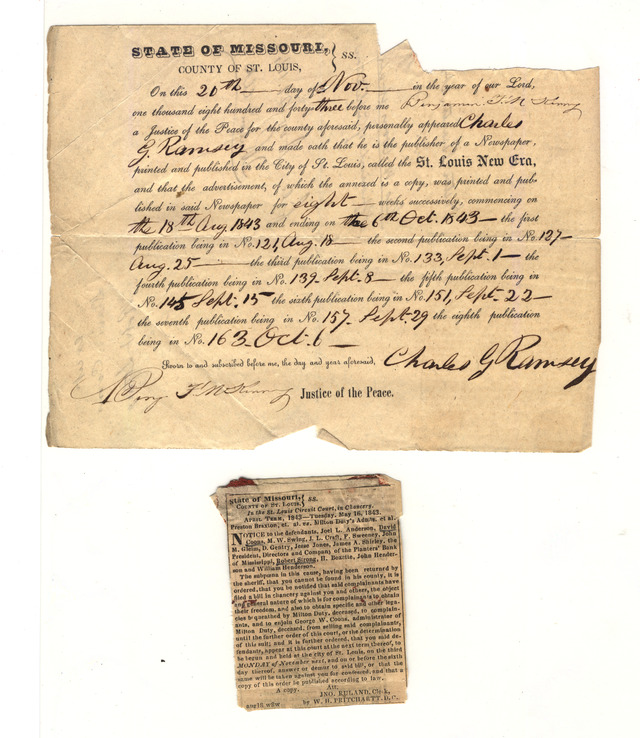 STATE OF MISSOURI, } ss.
COUNTY OF ST. LOUIS,
On this 20th day of Nov. in the year of our Lord,
one thousand eight hundred and forty-three before me Benjamin F. McKenny
a Justice of the Peace for the county aforesaid, personally appeared Charles
G. Ramsey and made oath that he is the publisher of a Newspaper,
printed and published in the City of St. Louis, called the St. Louis New Era,
and that the advertisement, of which the annexed is a copy, was printed and pub-
lished in said Newspaper for eight weeks successively, commencing on
the 18th Aug 1843 and ending on the 6th Oct. 1843 the first
publication being in No. 121, Aug. 18 the second publication being in No. 127
Aug. 25 the third publication being in No. 133, Sept. 1 the
fourth publication being in No. 139 Sept. 8 the fifth publication being in
No. 145 Sept. 15 the sixth publication being in No. 151, Sept. 22
the seventh publication being in No. 157 Sept. 29 the eighth publication
being in No. 163 Oct. 6
Sworn to and subscribed before me, the day and year aforesaid, Charles G Ramsey
Benj. F. McKenny Justice of the Peace.
State of Missouri, } ss.
COUNTY OF ST. LOUIS,
In the St. Louis Circuit Court, in Chancery.
APRIL TERM, 1843—Tuesday, May 16, 1843.
Preston Braxton, et. al. vs. Milton Duty's Adm'rs. et al.
NOTICE to the defendants, Joel L. Anderson, David
Coons, M. W. Ewing, J. L. Craft, F. Sweeney, John
M. Glenn, D. Gentry, Jesse Jones, James A. Shirley, the
President, Directors and Company of the Planters' Bank
of Mississippi, Robert Strong, H. Bonetta, John Hender-
son and William Henderson.
The subpœna in this cause, having been returned by
the sheriff, that you cannot be found in his county, it is
ordered, that you be notified that said complainants have
filed a bill in chancery against you and others, the object
and general nature of which is for complainants to obtain
their freedom, and also to obtain specific and other lega-
cies bequeathed by Milton Duty, deceased, to complain-
ants, and to enjoin George W. Coons, administrator of
Milton Duty, deceased, from selling said complainants,
until the further order of this court, or the determination
of this suit; and it is further ordered, that you said de-
fendants, appear at this court at the next term thereof, to
be begun and held at the city of St. Louis, on the third
MONDAY of November next, and on or before the sixth
day thereof, answer or demur to said bill, or that the
same will be taken against you for confessed, and that a
copy of this order be published according to law.
A copy. Att.
JNO. RULAND, Clerk,
by W. H. PRITCHARTT, D. C.
aug18 w8w